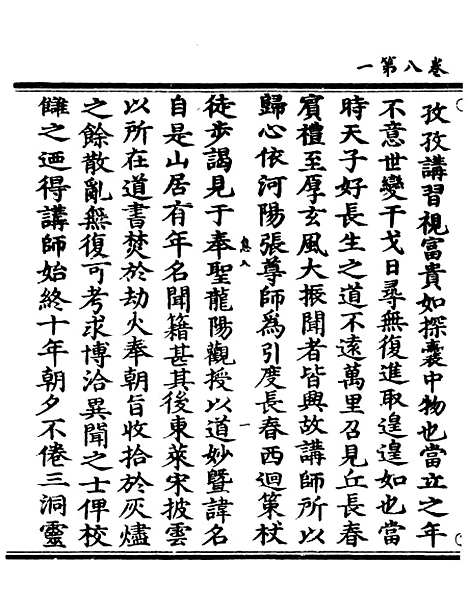 卷八第一
孜孜講習視富貴如探囊中物也當立之年
不意世變干戈日尋無復進取遑遑如也當
時天子好長生之道不遠萬里召見丘長春
賓禮至厚玄風大振聞者皆興故講師所以
歸心依河陽張尊師為引度長春西迴策杖
徒步謁見于奉聖龍陽觀授以道妙暨諱名
自是山居有年名聞籍甚其後東萊宋披雲
以所在道書焚於劫火奉朝旨收拾於灰燼
之餘散亂無復可考求博洽異聞之士俾校
讎之迺得講師始終十年朝夕不倦三洞靈